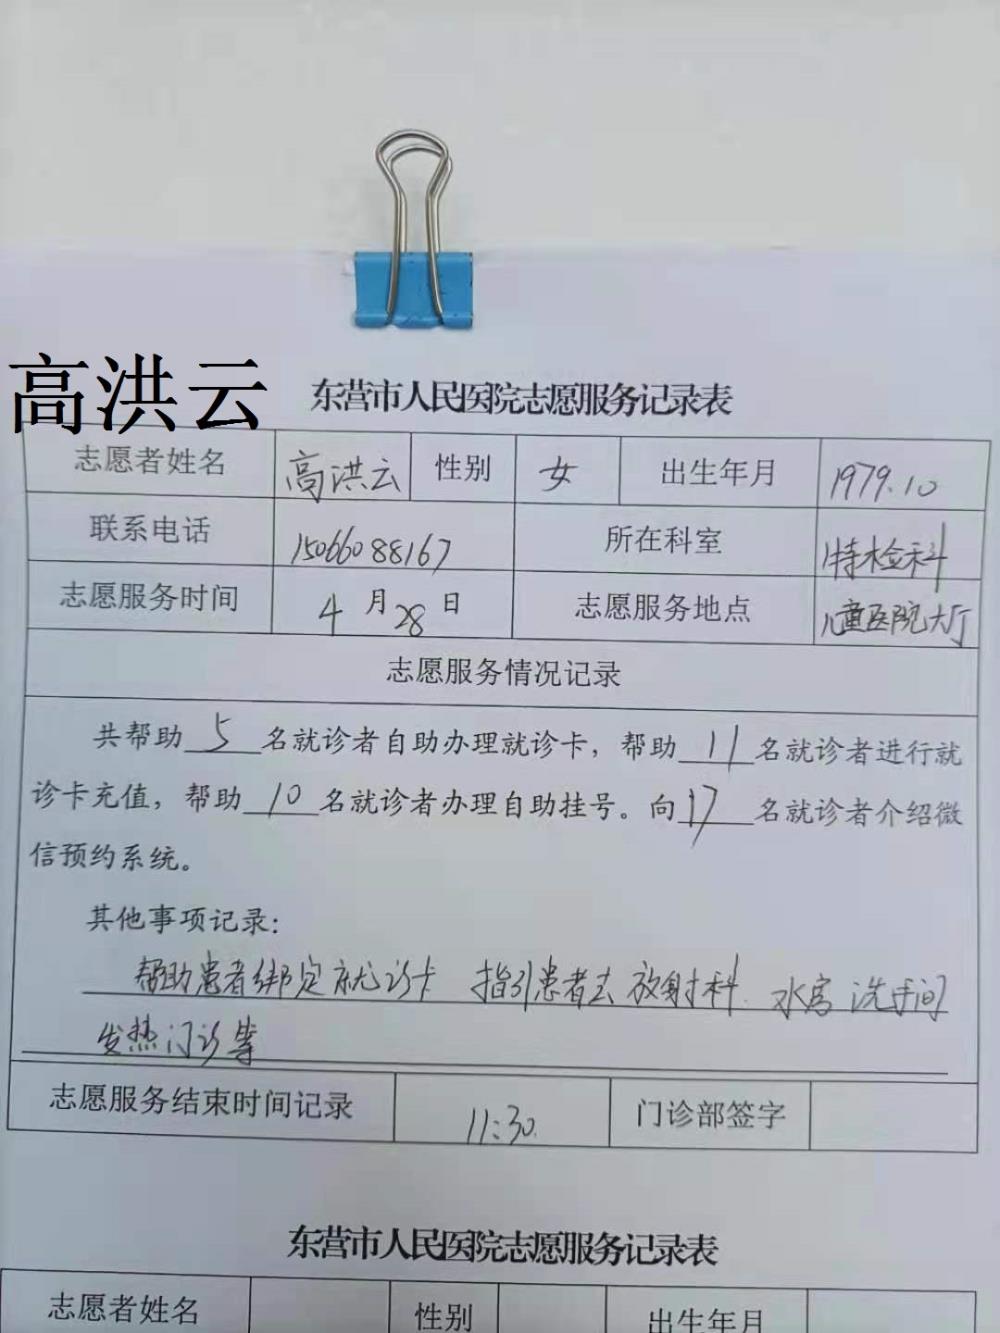 高洪云
东营市人民医院志愿服务记录表
志愿者姓名 高洪云 性别 女 出生年月 1979.10
联系电话 15066088167 所在科室 特检科
志愿服务时间 4月28日 志愿服务地点 儿童医院大厅
志愿服务情况记录
共帮助5名就诊者自助办理就诊卡，帮助11名就诊者进行就
诊卡充值，帮助10名就诊者办理自助挂号。向17名就诊者介绍微
信预约系统。
其他事项记录：
帮助患者绑定就诊卡 指引患者去放射科.水房 洗手间
发热门诊等
志愿服务结束时间记录 11:30. 门诊部签字
东营市人民医院志愿服务记录表
志愿者姓名 性别 出生年月